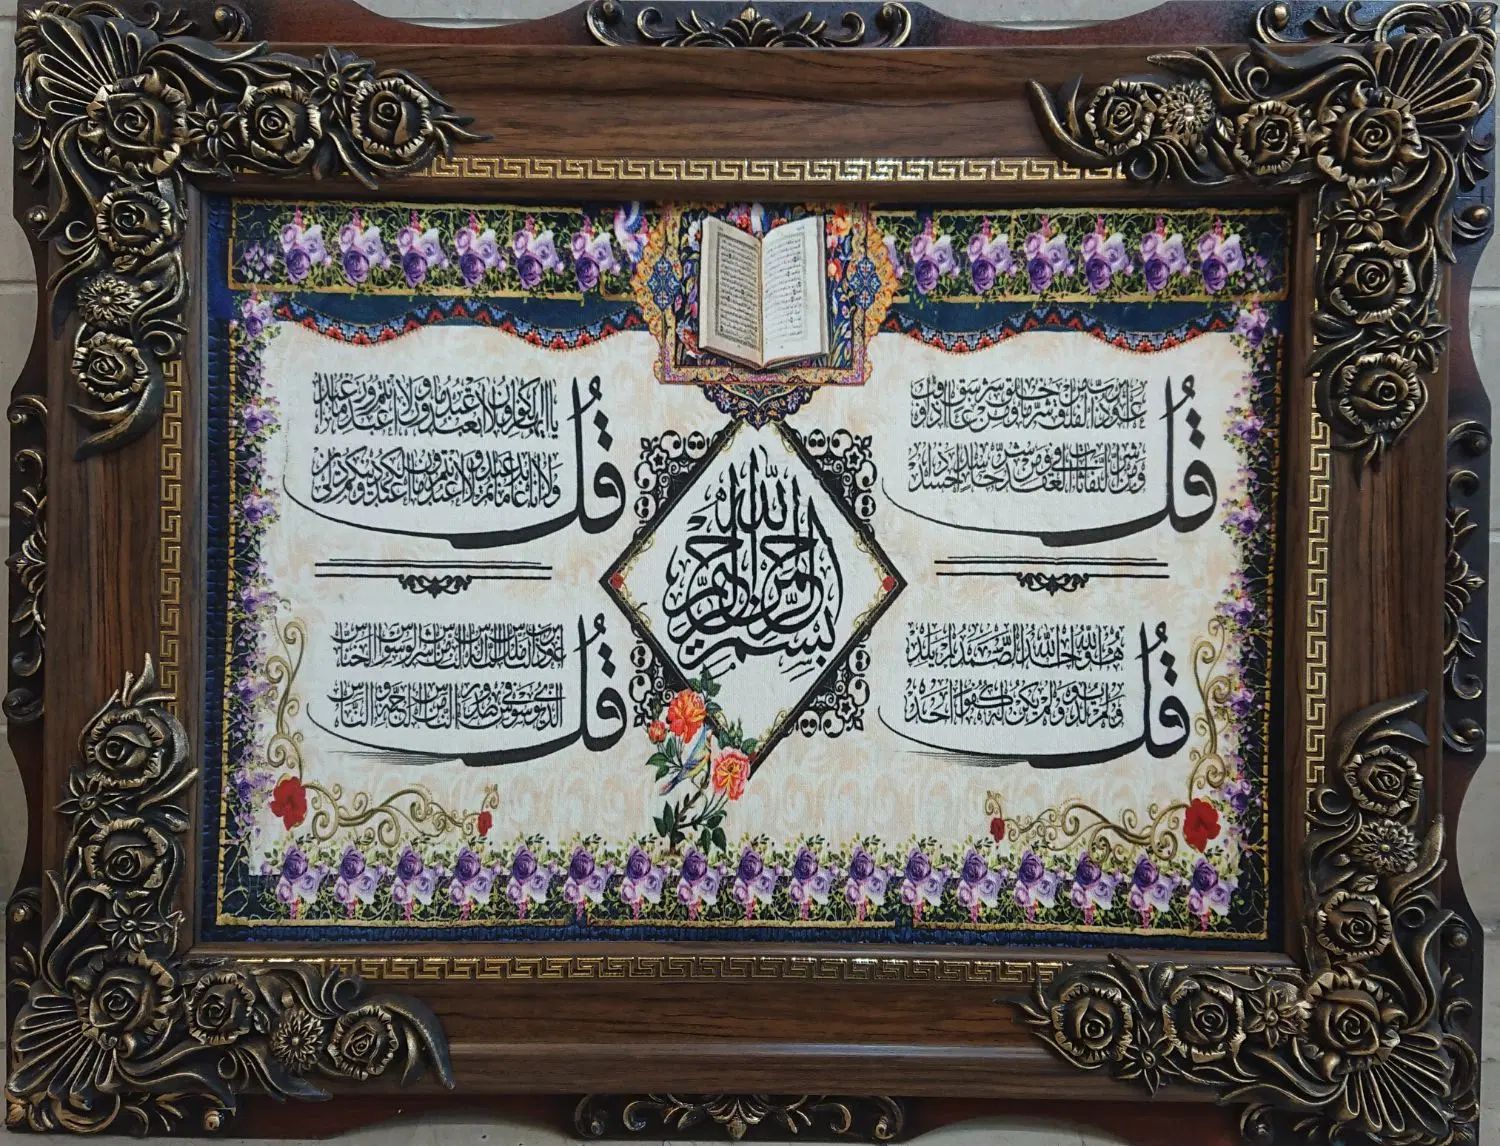 بسم الله الرحمن الرحيم
قل اعوذ برب الفلق من شر ما خلق ومن شر غاسق اذا وقب
ومن شر النفاثات في العقد ومن شر حاسد اذا حسد
قل يا ايها الكافرون لا اعبد ما تعبدون ولا انتم عابدون ما اعبد
ولا انا عابد ما عبدتم ولا انتم عابدون ما اعبد لكم دينكم ولي دين
قل هو الله احد الله الصمد لم يلد
ولم يولد ولم يكن له كفوا احد
قل اعوذ برب الناس ملك الناس اله الناس من شر الوسواس الخناس
الذي يوسوس في صدور الناس من الجنة و الناس